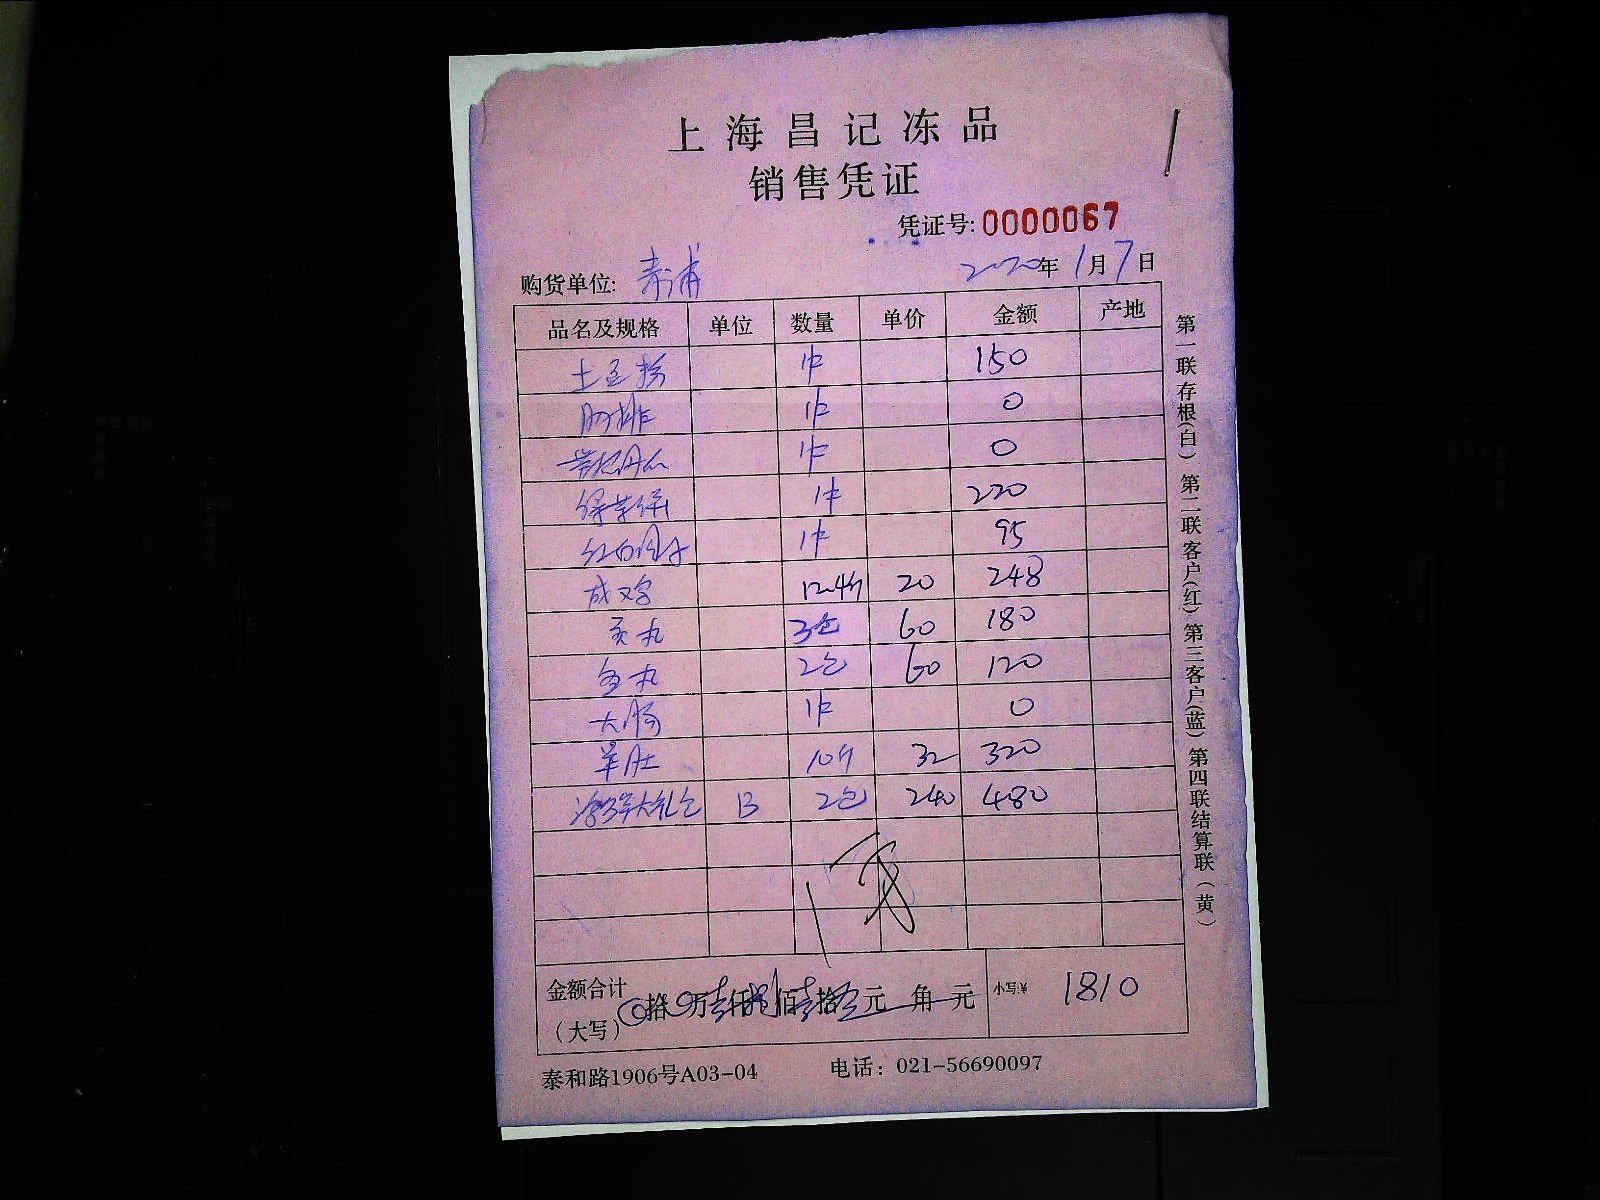 上海昌记冻品
销售凭证
凭证号:0000067
购货单位: 2020年1月7日
品名及规格 单位 数量 单价 金额 产地
土豆粉 1件 150
1件 0
1件 0
1件 220
1件 95
成鸡 12.4斤 20 248
贡丸 3包 60 180
鱼丸 2包 60 120
大肠 1件 0
羊肚 10斤 32 320
海鲜大礼包 B 2包 240 480
金额合计
(大写) 拾 万壹仟捌佰壹拾 元 角 元 小写:¥ 1810
泰和路1906号A03-04 电话: 021-56690097
第一联存根(白) 第二联客户(红) 第三客户(蓝) 第四联结算联(黄)